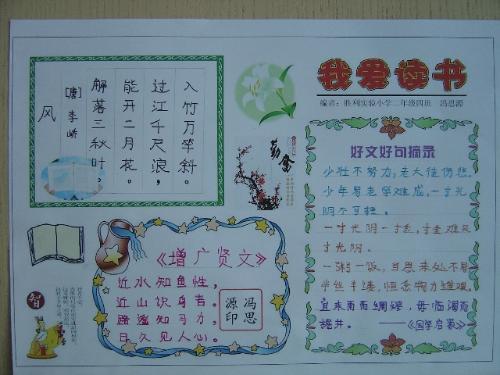 我爱读书
编者：胜利实验小学二年级四班 冯思源
风
[唐] 李峤
解落三秋叶，
能开二月花。
过江千尺浪，
入竹万竿斜。
好文好句摘录
少壮不努力，老大徒伤悲。
少年易老学难成，一寸光
阴不可轻。
一寸光阴一寸金，寸金难买
寸光阴。
一粥一饭，当思来处不易
半丝半缕，恒念物力维艰。
宜未雨而绸缪，毋临渴而
掘井。 《国学启蒙》
《增广贤文》
近水知鱼性，
近山识鸟音。
路遥知马力，
日久见人心。
冯思
源印
智